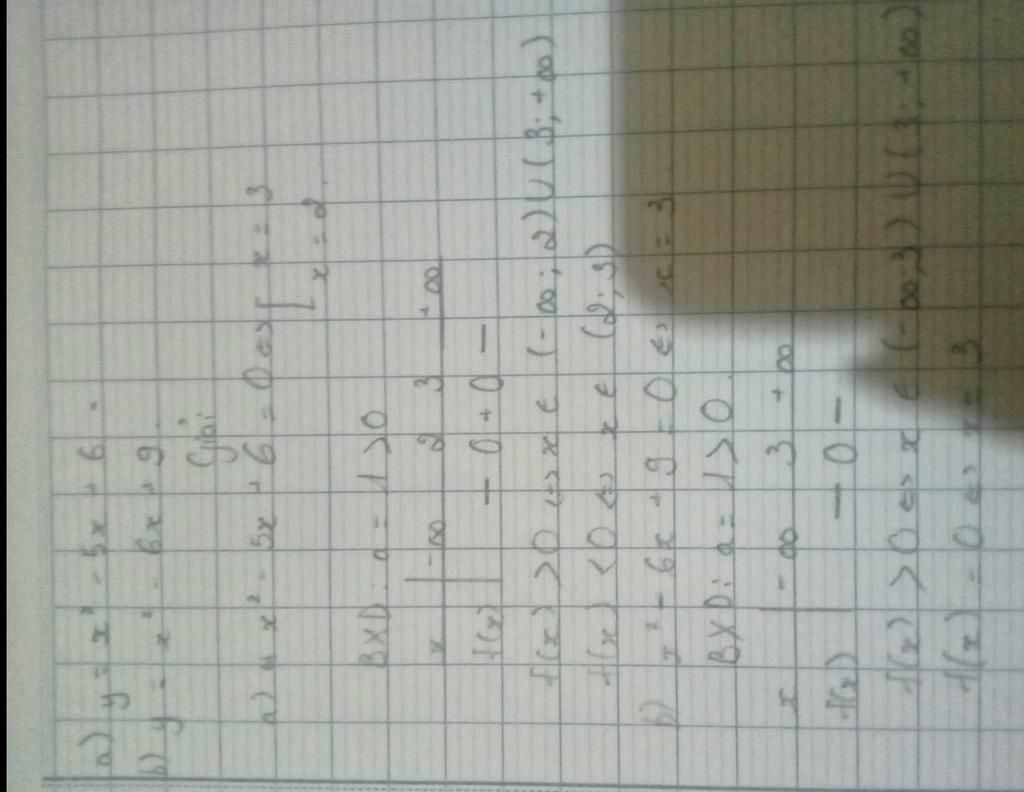 a) y = x² - 5x + 6.
b) y = x² - 6x + 9.
Giải
a) x² - 5x + 6 = 0 <=> [ x = 3
[ x = 2.
BXD: a = 1 > 0
x | -∞ 2 3 +∞
f(x) | — 0 + 0 —
f(x) > 0 <=> x ∈ (-∞; 2) ∪ (3; +∞)
f(x) < 0 <=> x ∈ (2; 3)
b) x² - 6x + 9 = 0 <=> x = 3
BXD: a = 1 > 0.
x | -∞ 3 +∞
f(x) | — 0 —
f(x) > 0 <=> x ∈ (-∞; 3) ∪ (3; +∞)
f(x) = 0 <=> x = 3